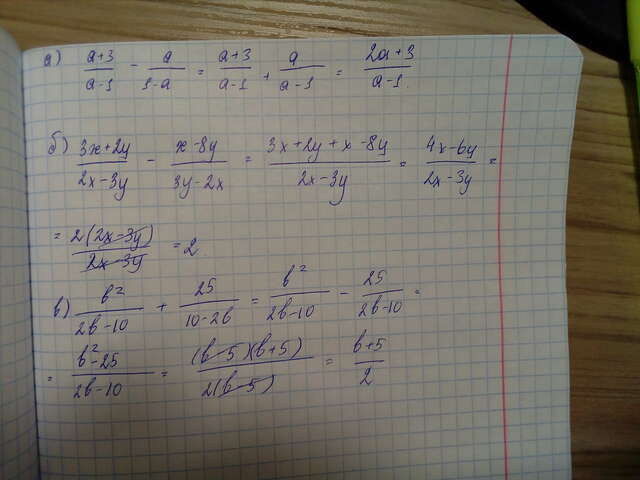 а) (a+3)/(a-1) - a/(1-a) = (a+3)/(a-1) + a/(a-1) = (2a+3)/(a-1)
б) (3x+2y)/(2x-3y) - (x-8y)/(3y-2x) = (3x+2y+x-8y)/(2x-3y) = (4x-6y)/(2x-3y) =
= 2(2x-3y)/(2x-3y) = 2
в) b²/(2b-10) + 25/(10-2b) = b²/(2b-10) - 25/(2b-10) =
= (b²-25)/(2b-10) = (b-5)(b+5)/2(b-5) = (b+5)/2